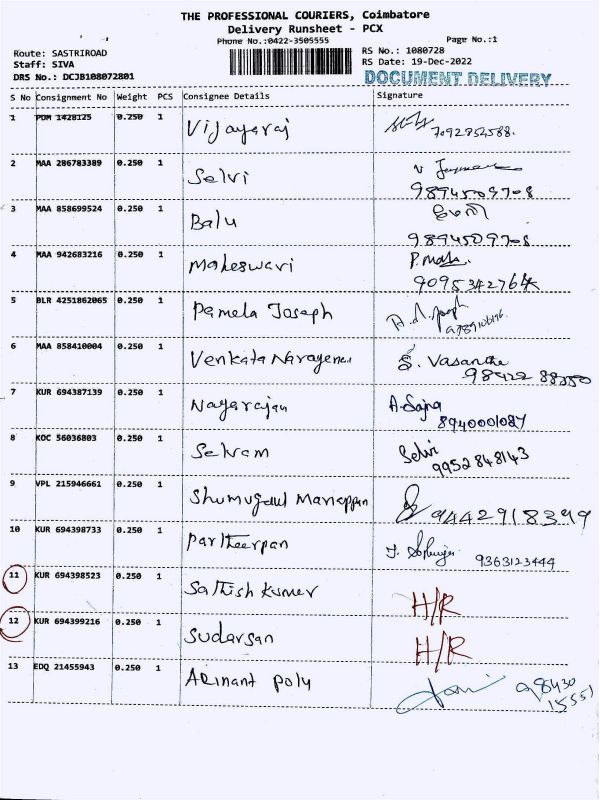 THE PROFESSIONAL COURIERS, Coimbatore
Delivery Runsheet - PCX
Phone No.:0422-3505555
Page No.:1
Route: SASTRIROAD
RS No.: 1080728
Staff: SIVA
RS Date: 19-Dec-2022
DRS No.: DCJB108072801
DOCUMENT DELIVERY
S No Consignment No Weight PCS Consignee Details Signature
1 PDM 1428125 0.250 1 Vijayaraj 7092952588.
2 MAA 286783389 0.250 1 Selvi 9894509708
3 MAA 858699524 0.250 1 Balu 9894509708
4 MAA 942683216 0.250 1 Maheswari 9095342764
5 BLR 4251862065 0.250 1 Pamela Joseph
6 MAA 858410004 0.250 1 Venkata Narayenan S. Vasantha
7 KUR 694387139 0.250 1 Nagarajan 8940001087
8 KOC 56036803 0.250 1 Selvam Selvi 9952848143
9 VPL 215946661 0.250 1 9442918399
10 KUR 694398733 0.250 1 Partheepan 9363123444
11 KUR 694398523 0.250 1 Sathish Kumer H/R
12 KUR 694399216 0.250 1 Sudarsan H/R
13 EDQ 21455943 0.250 1 Arinant poly 98430
15551